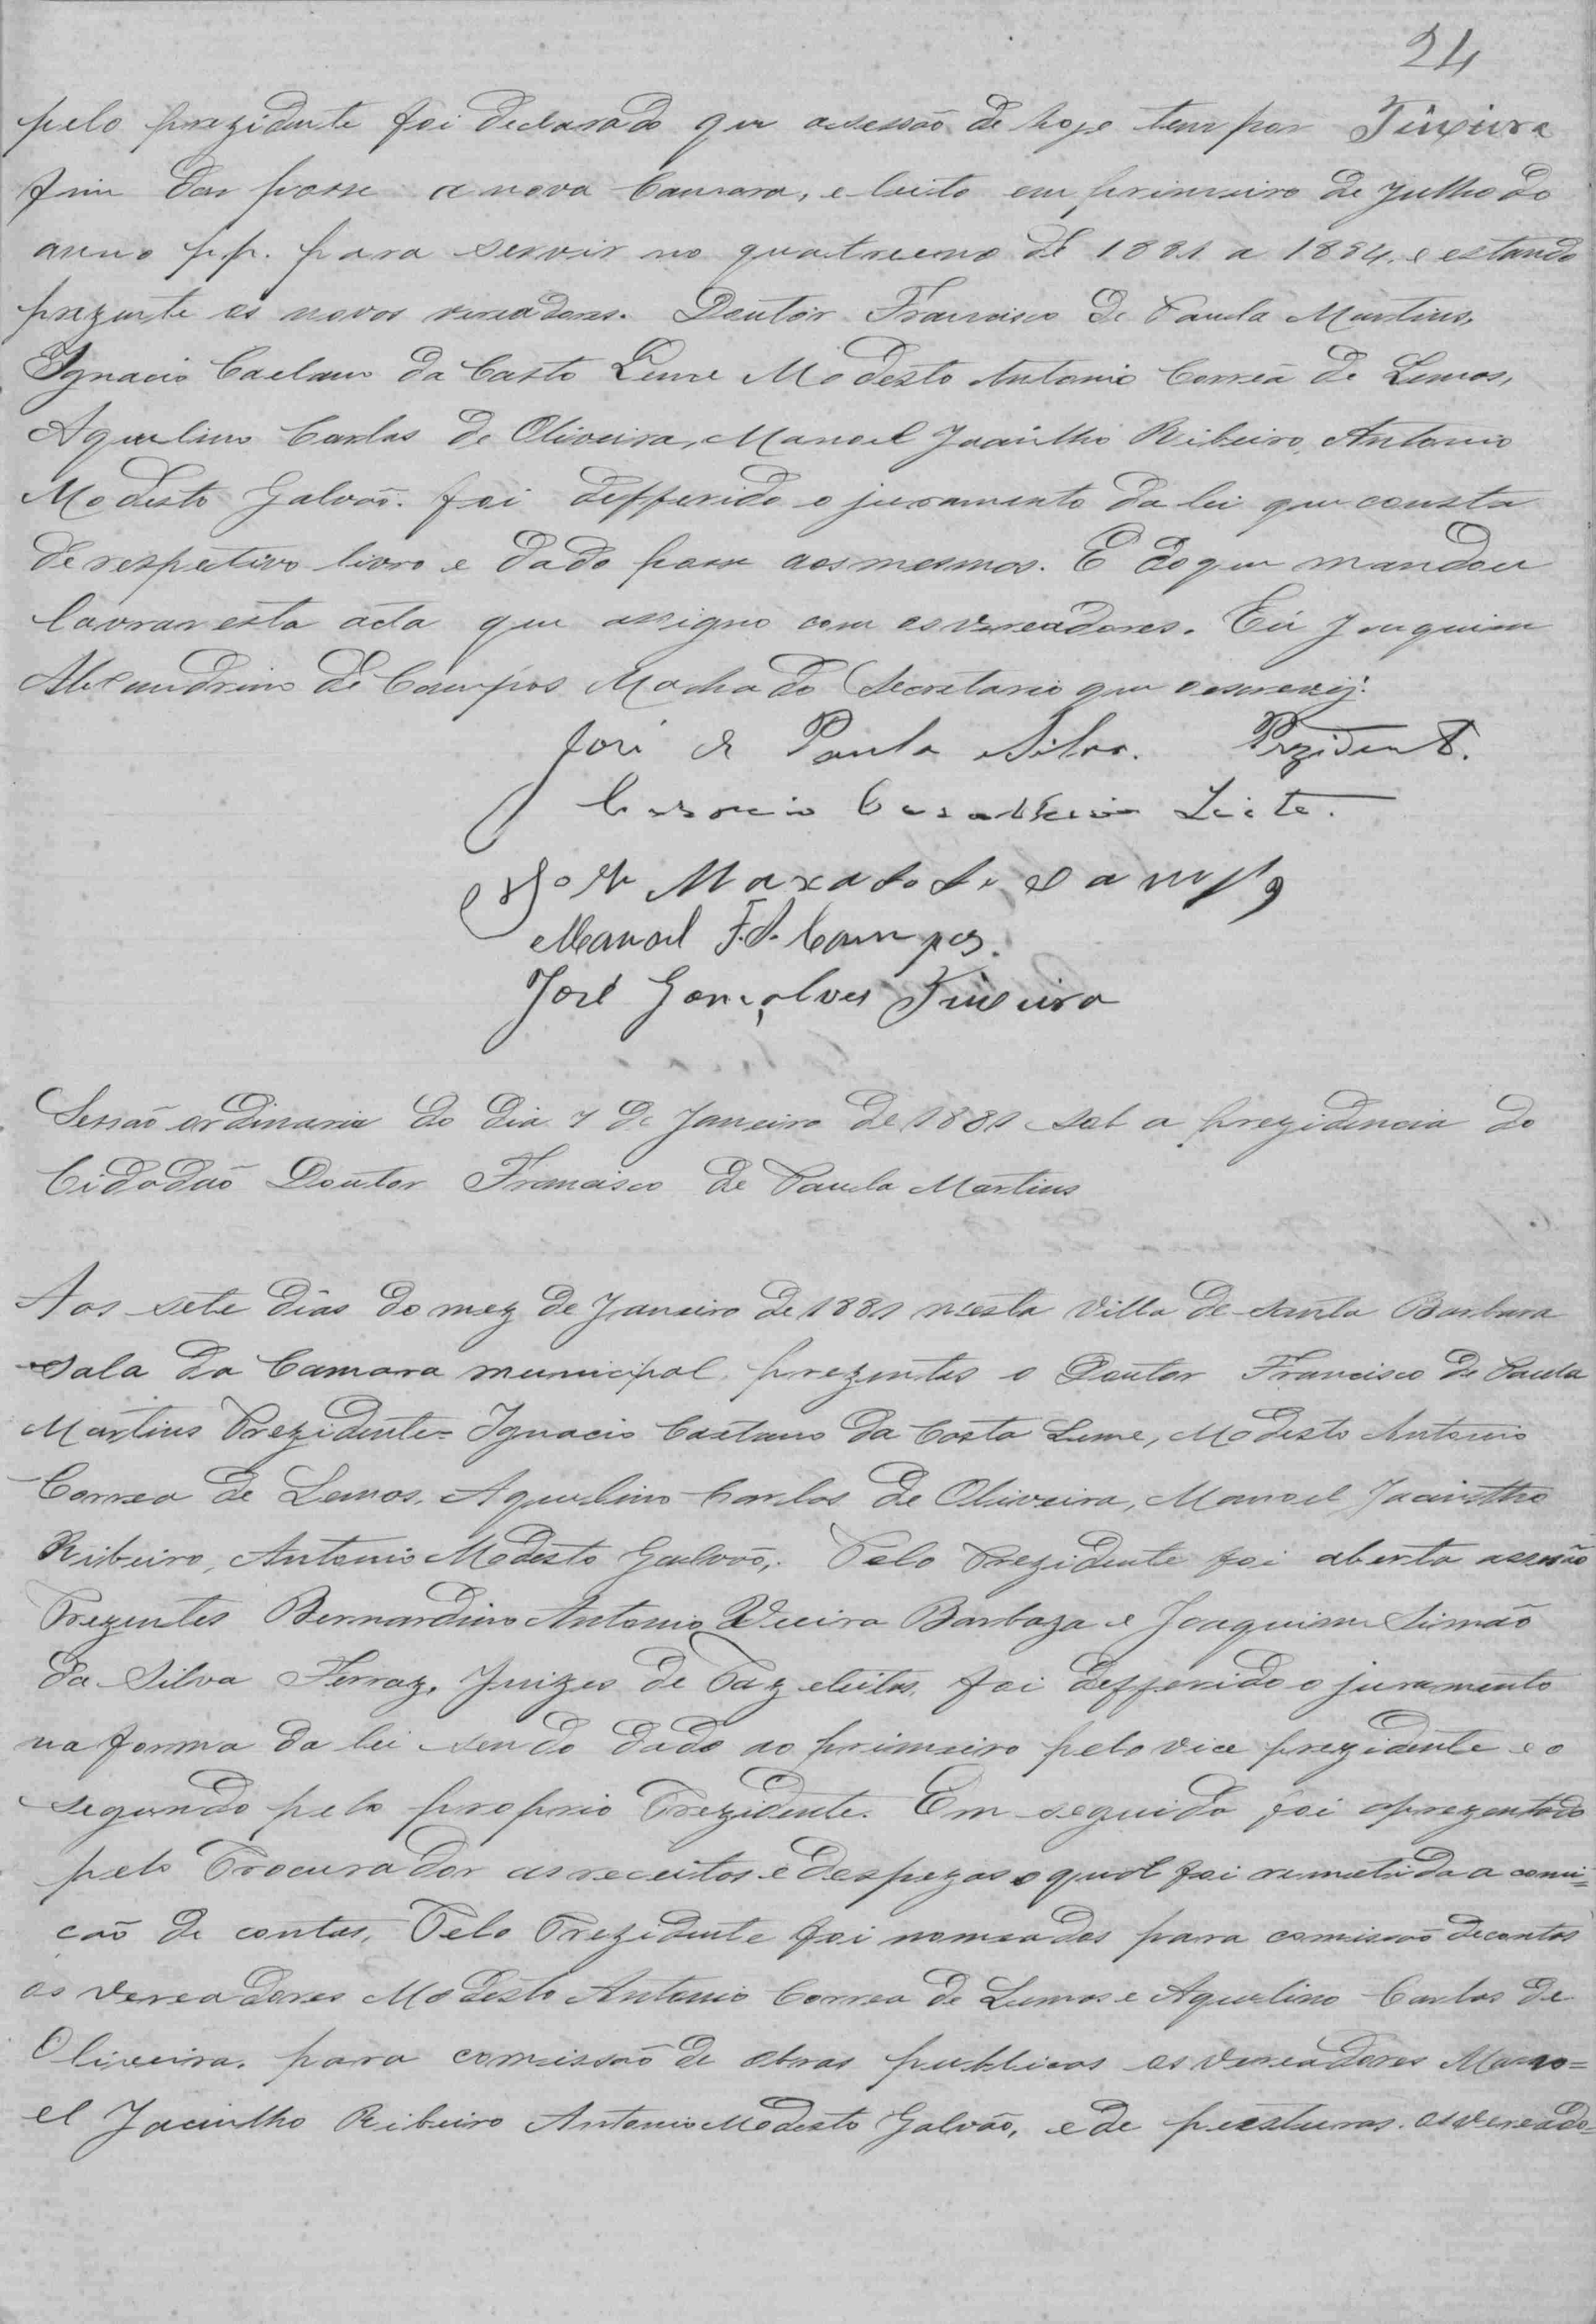 24
pelo prezidente foi declarado que a sessão de hoje tem por Teixeira
fim dar posse a nova Camara, eleita em primeiro de Julho do
anno p.p. para servir no quatrieno de 1881 a 1884, e estando
prezente os novos vereadores. Doutor Francisco de Paula Martins,
Ignacio Caetano da Costo Leme Modesto Antonio Correa de Lemos,
Aquelino Carlos de Oliveira, Manoel Jacintho Ribeiro, Antonio
Modesto Galvão. foi defferido o juramento da lei que consta
de respetivo livro e dado posse aos mesmos. E do que mandou
lavrar esta acta que assigno com os vereadores. Eu Joaquim
Alexandrino de Campos Machado Secretario que o escrevij.
José de Paula Silva. Prezidente.
Leite.
Maxado de Campos
Manoel F. Campos.
José Gonçalves Teixeira
Sessão ordinaria do dia 7 de Janeiro de 1881 sob a prezidencia do
Cidadão Doutor Francisco de Paula Martins
Aos sete dias do mez de Janeiro de 1881 nesta Villa de Santa Barbara
sala da Camara municipal, prezentes o Doutor Francisco de Paula
Martins Prezidente= Ignacio Caetano da Costa Leme, Modesto Antonio
Correa de Lemos, Aquelino Carlos de Oliveira, Manoel Jacintho
Ribeiro, Antonio Modesto Galvão, Pelo Prezidente foi aberta assesão
Prezentes Bernardino Antonio Vieira Barboza e Joaquim Simão
da Silva Ferraz, Juizes de Paz eleitos, foi defferido o juramento
na forma da lei sendo dado ao primeiro pelo vice prezidente e o
segundo pelo proprio Prezidente. Em seguida foi aprezentado
pelo Procurador as receitas e despezas o qual foi remetida a comi=
ção de contas, Pelo Prezidente foi nomeados para comissão de contas
os vereadores Modesto Antonio Correa de Lemos e Aquelino Carlos de
Oliveira. para comissão de obras publicas os vereadores Mano=
el Jacintho Ribeiro Antonio Modesto Galvão, e de pusturas. os vereado=